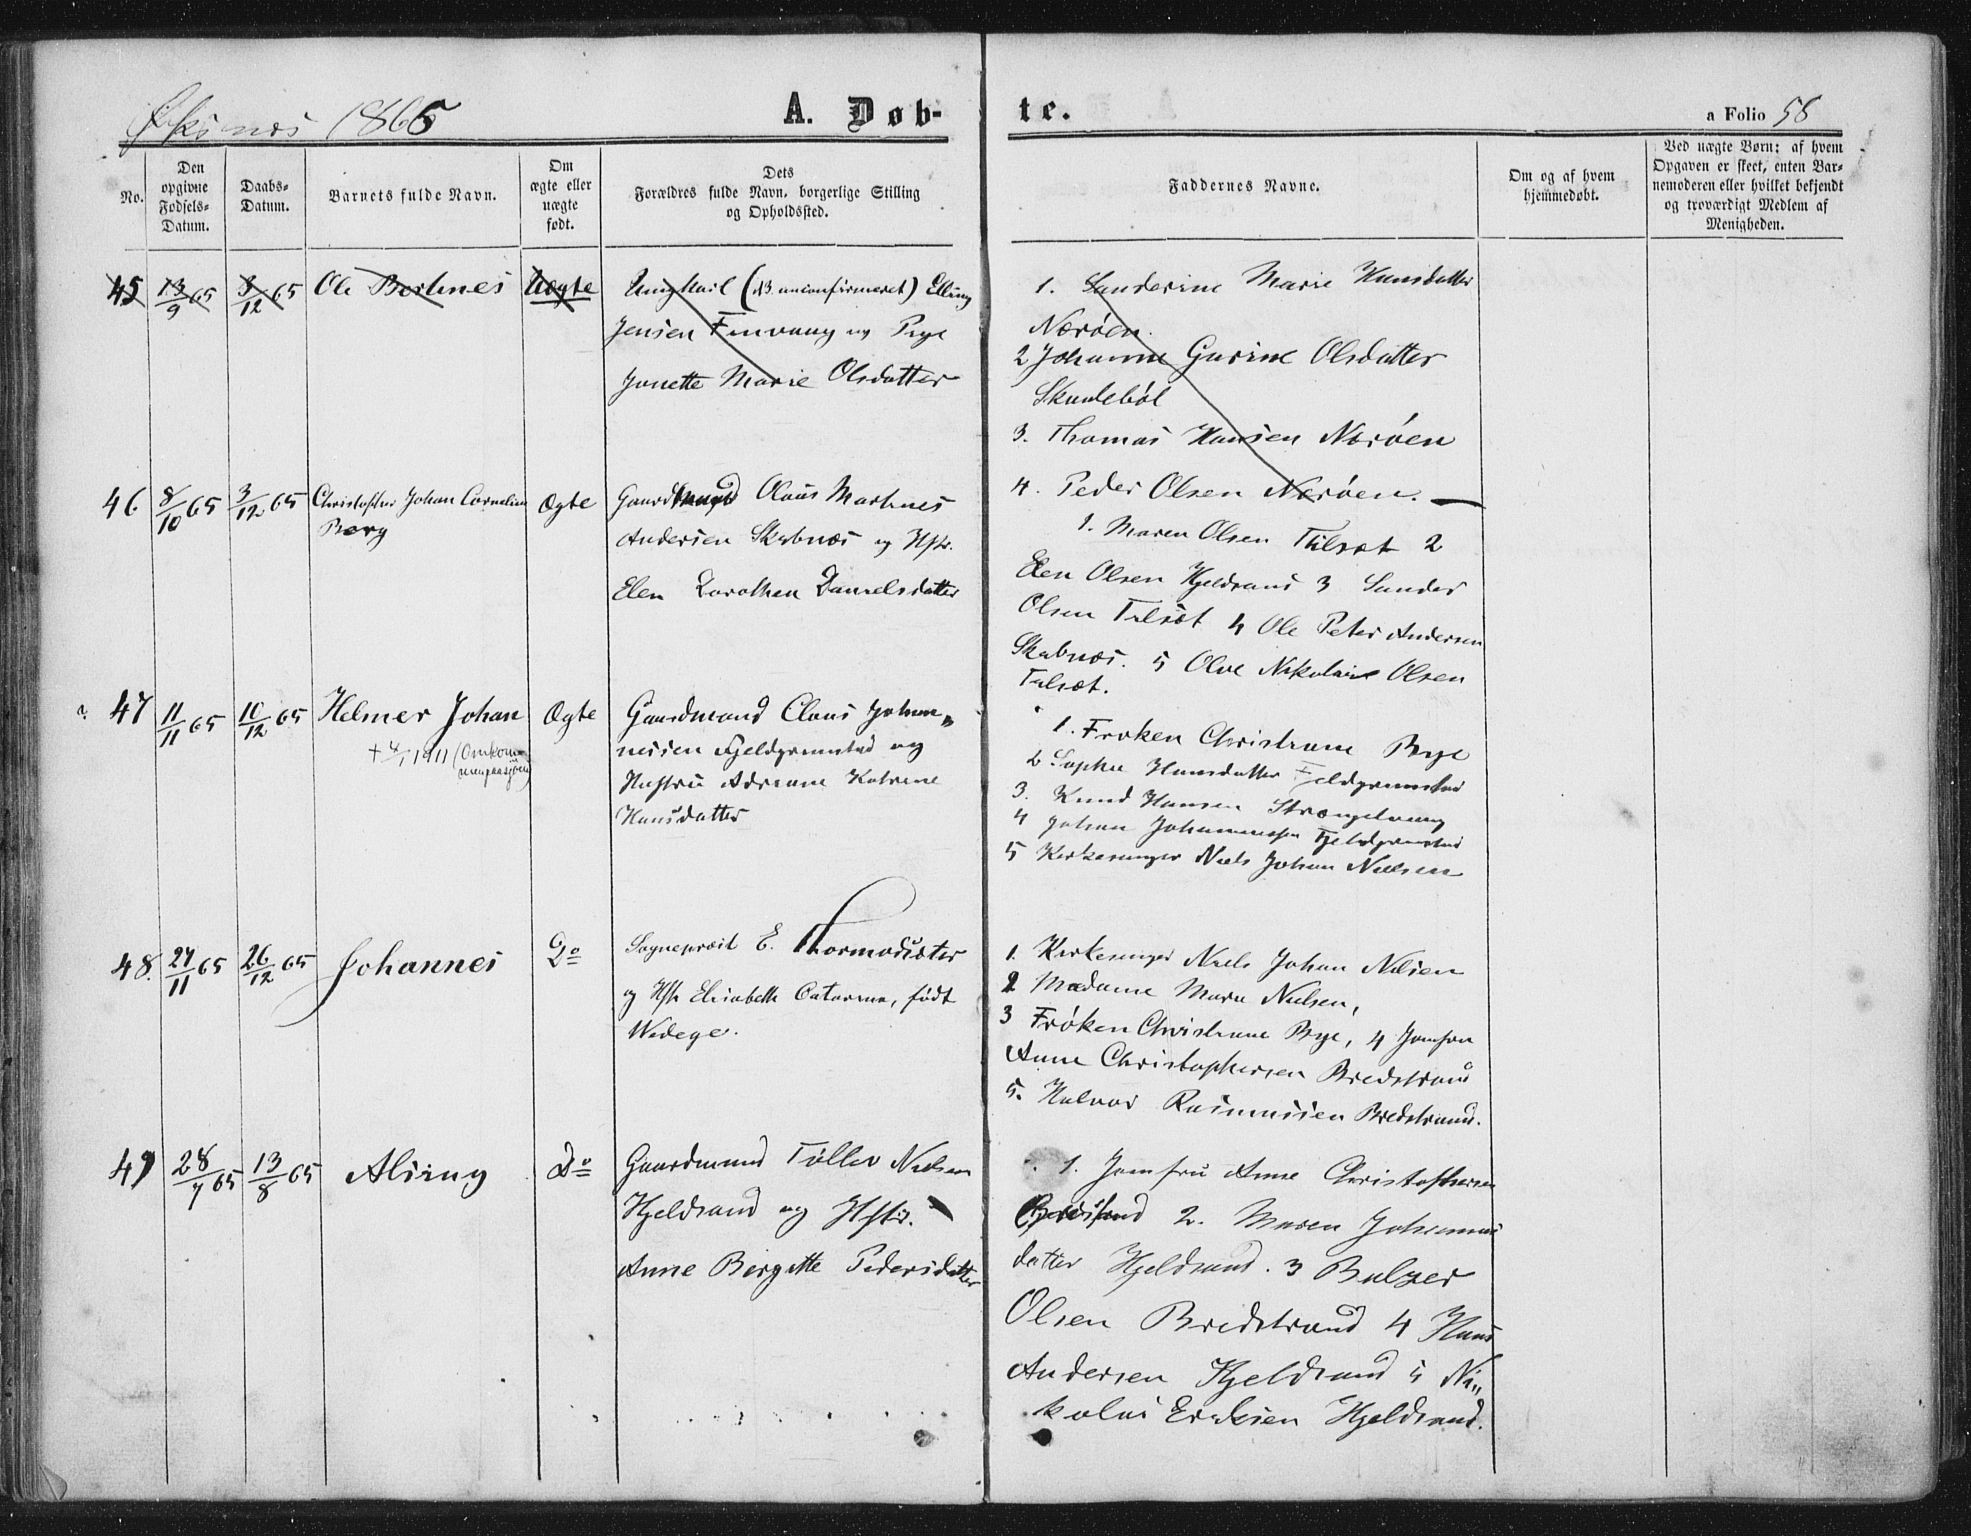 Øksnæs 1865
A. Døb-
te.
a Folio 58
No.
Den
opgivne
Fødsels-
Datum.
Daabs-
Datum.
Barnets fulde Navn.
Om
ægte eller
uægte
født.
Dets
Forældres fulde Navn, borgerlige Stilling
og Opholdssted.
Faddernes Navne.
Om og af hvem
hjemmedøbt.
Ved uægte Børn: af hvem
Opgaven er skeet, enten Bar-
nemoderen eller hvilket bekjendt
og troværdigt Medlem af
Menigheden.
45 13/9 65 3/12 65 Ole Uægte
Ungkarl (NB. unconfirmeret) Elling
Jensen og Pige
Janette Marie Olsdatter
1. Sanderine Marie Hansdatter
Nærøen.
2 Johanne Gurine Olsdatter
3. Thomas Hansen Nærøen
4. Peder Olsen Nærøen.
46 8/10 65 3/12 65 Christopher Johan Cornelius
Berg
Ægte
Gaardmand Olaus Martinus
Andersen Skabnæs og Hstr.
Elen Dorothea Danielsdatter
1. Maren Olsen Tilsæt 2
Elen Olsen Hjeldsand 3 Sander
Olsen Tilsæt 4 Ole Peter Andersen
Skabnæs. 5 Olve Nikolai Olsen
Tilsæt.
47 11/11 65 10/12 65 Helmer Johan
+ 1911 (Omkom-
Ægte
Gaardmand Claus Johan-
nesen og
Hustru Adriane Katrine
Hansdatter
1. Frøken Christiane Bye
2 Sophie Hansdatter
3. Knud Hansen Strengelvaag
4 Johan Johannessen
5 Kirkesanger Niels Johan Nielsen
48. 27/11 65 26/12 65 Johannes
Do
Sognepræst E. Thormodsæter
og Hstr Elisabeth Catarina, født
Wedege.
1. Kirkesanger Niels Johan Nilsen
2 Madame Maria Nielsen,
3 Frøken Christiane Bye, 4 Jomfru
Anne Christophersen Bredstrand
5. Halvor Rasmussen Bredstrand.
49 28/7 65 13/8 65 Alsing
Do
Gaardmand Tøller Nielsen
Hjeldsand og Hstr.
Anne Birgitte Pedersdatter
1. Jomfru Anne Christophersen
Bredstrand 2. Maren Johannes
datter Hjeldsand. 3 Balzer
Olsen Bredstrand 4 Hans
Andersen Hjeldsand 5 Ni-
kolai Eriksen Hjeldsand.